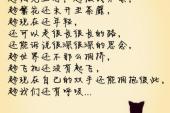 趁繁花还未开至荼靡，
趁现在还年轻，
还可以走很长很长的路，
还能诉说很深很深的思念，
趁世界还不那么拥挤，
趁飞机还没有起飞，
趁现在自己的双手还能拥抱彼此，
趁我们还有呼吸...